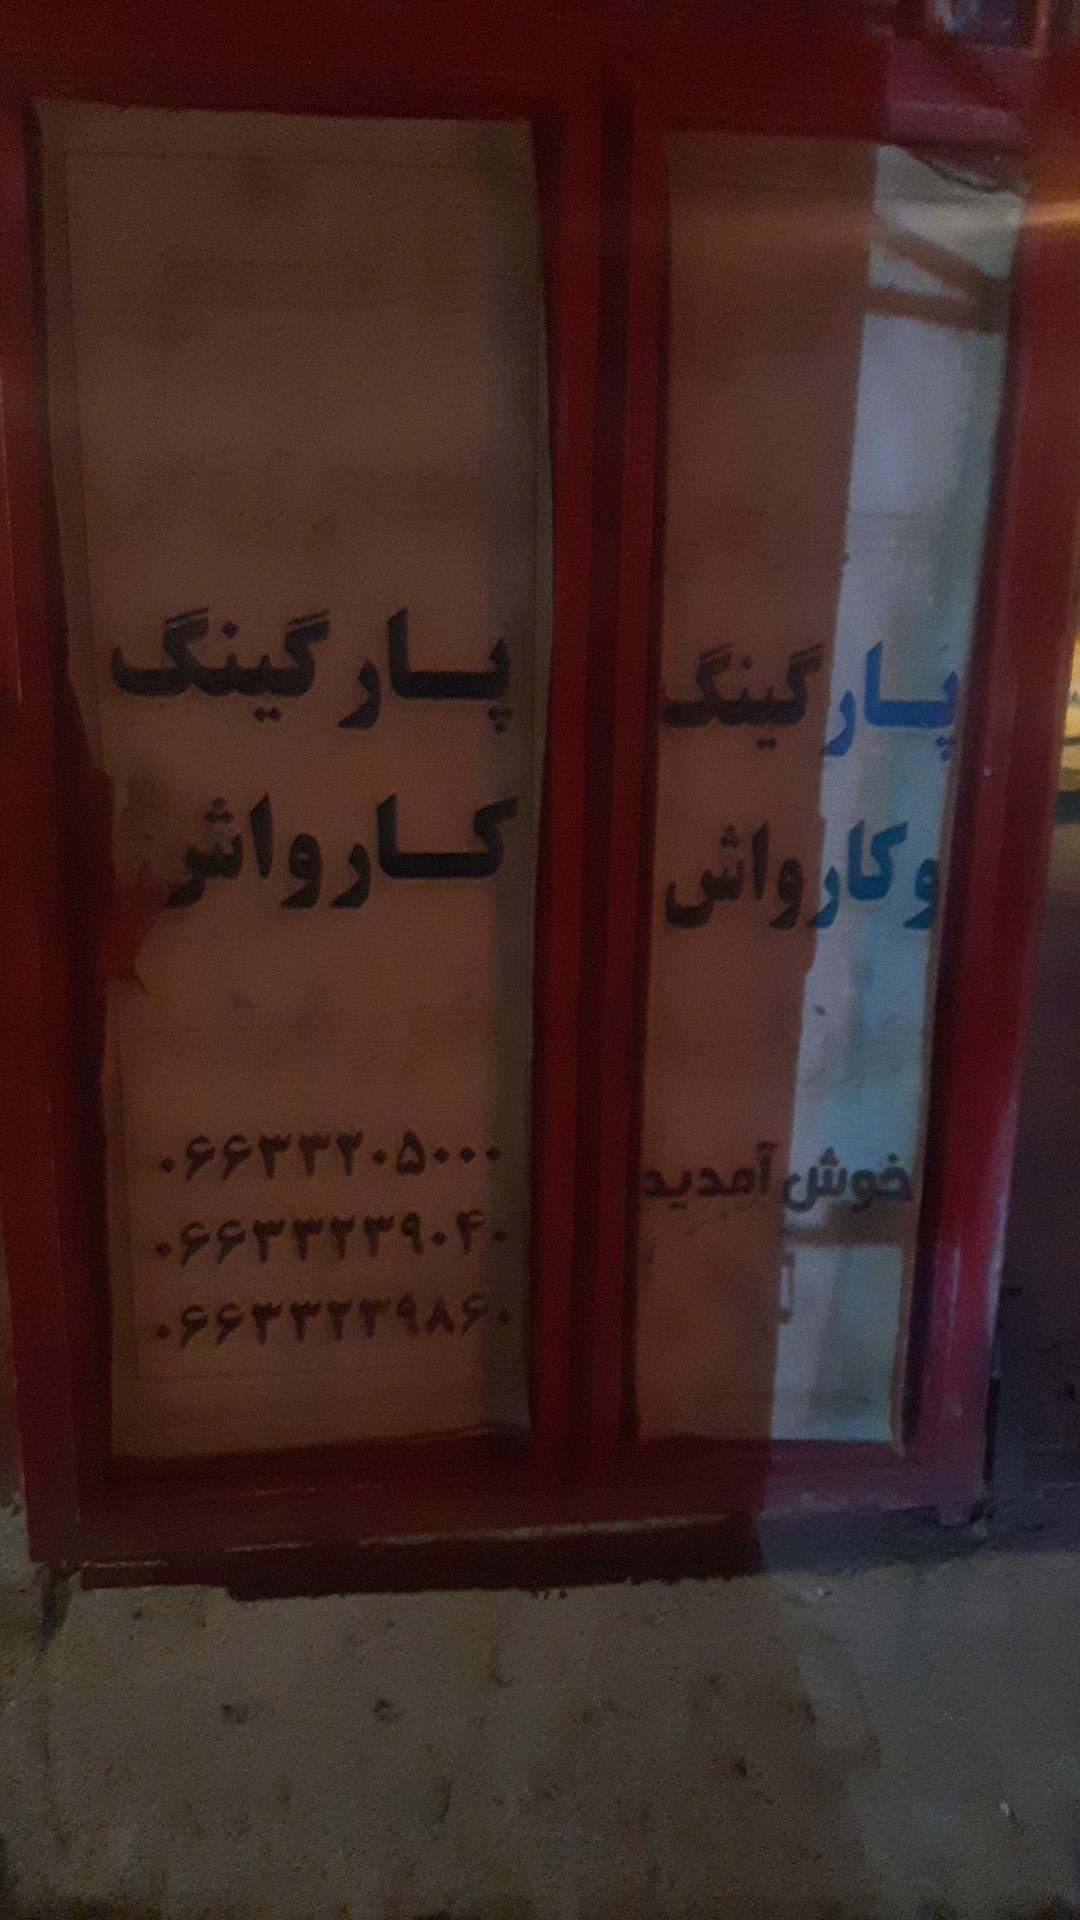 پارگینگ
و کارواش
خوش آمدید
پارگینگ
کارواش
۰۶۶۳۳۲۰۵۰۰۰
۰۶۶۳۳۲۳۹۰۴۰
۰۶۶۳۳۲۳۹۸۶۰